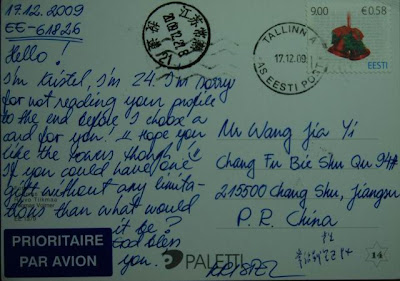 17.12.2009
EE-61826
Hello!
I'm Kristel, I'm 24. I'm sorry
for not reading your profile
to the end before I chose a
card for you! I hope you
like the towers though!
If you could have one
gift without any limita-
tions than what would
it be?
God bless
you.
KRISTEL
PRIORITAIRE
PAR AVION
PALETTI
9.00 €0.58
EESTI
TALLINN A
17.12.09
AS EESTI POST
江苏常熟
2009.12.29
Mr Wang Jia Yi
Chang Fu Bie Shu Qu 94#
215500 Chang Shu, Jiangsu
P. R. China
14